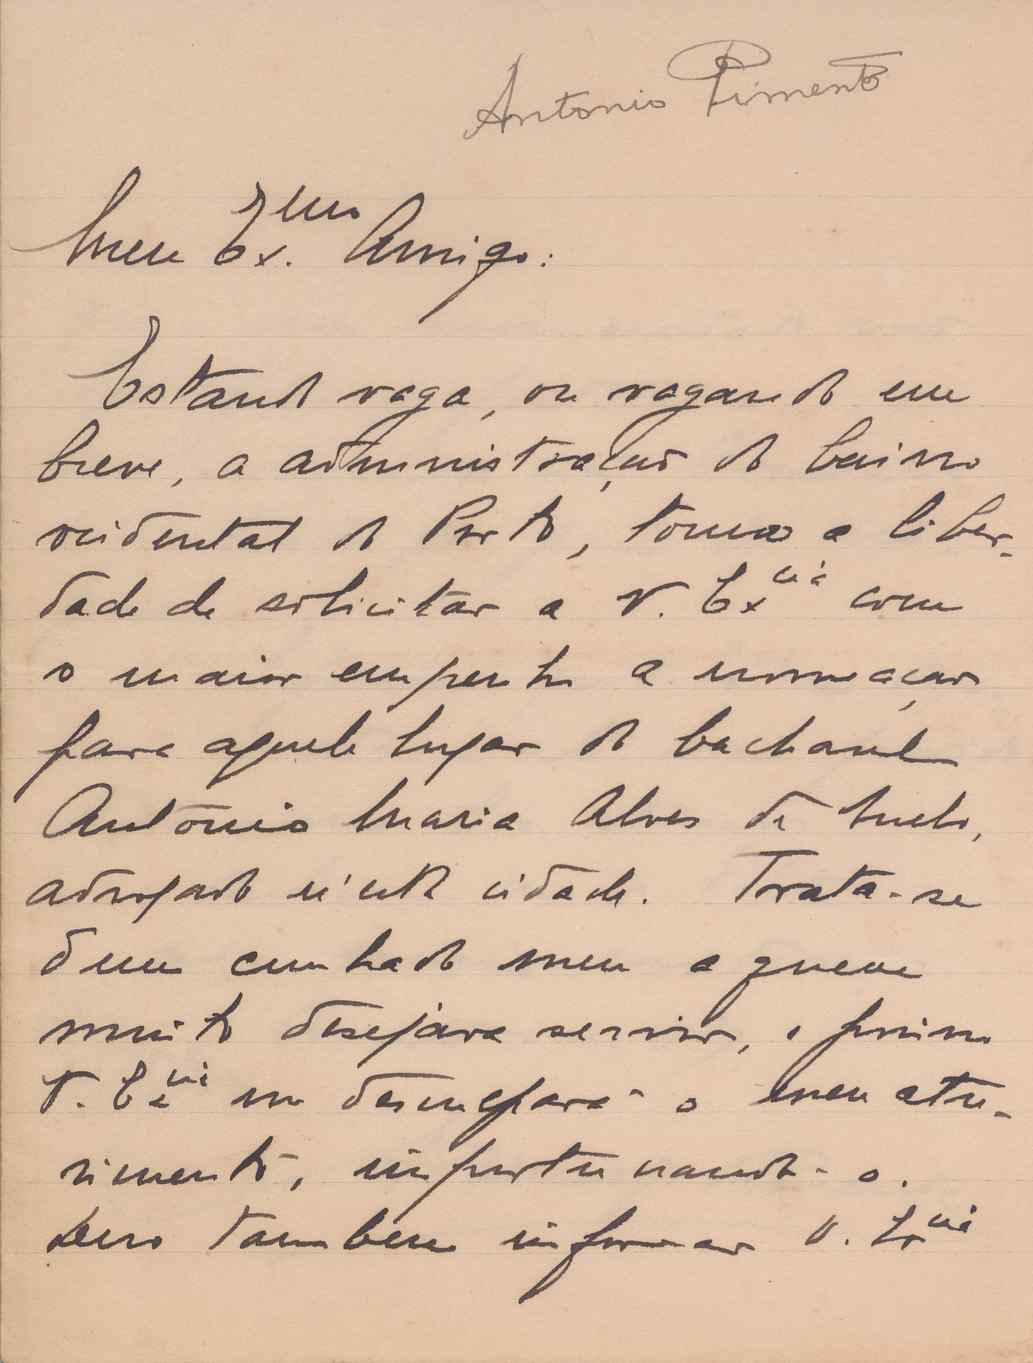 Antonio Pimenta
Meu Ex.mo Amigo:
Estando vaga, ou vagando em
breve, a administração do bairro
ocidental do Porto, tomo a liber-
dade de solicitar a V. Excia com
o maior empenho a nomeação
para aquele lugar do bacharel
António Maria Alves de Melo,
advogado n'esta cidade. Trata-se
dum cunhado meu a quem
muito desejava servir, e por isso
V. Excia me desculpará o meu atre-
vimento, importunando-o.
Devo tambem informar V. Excia